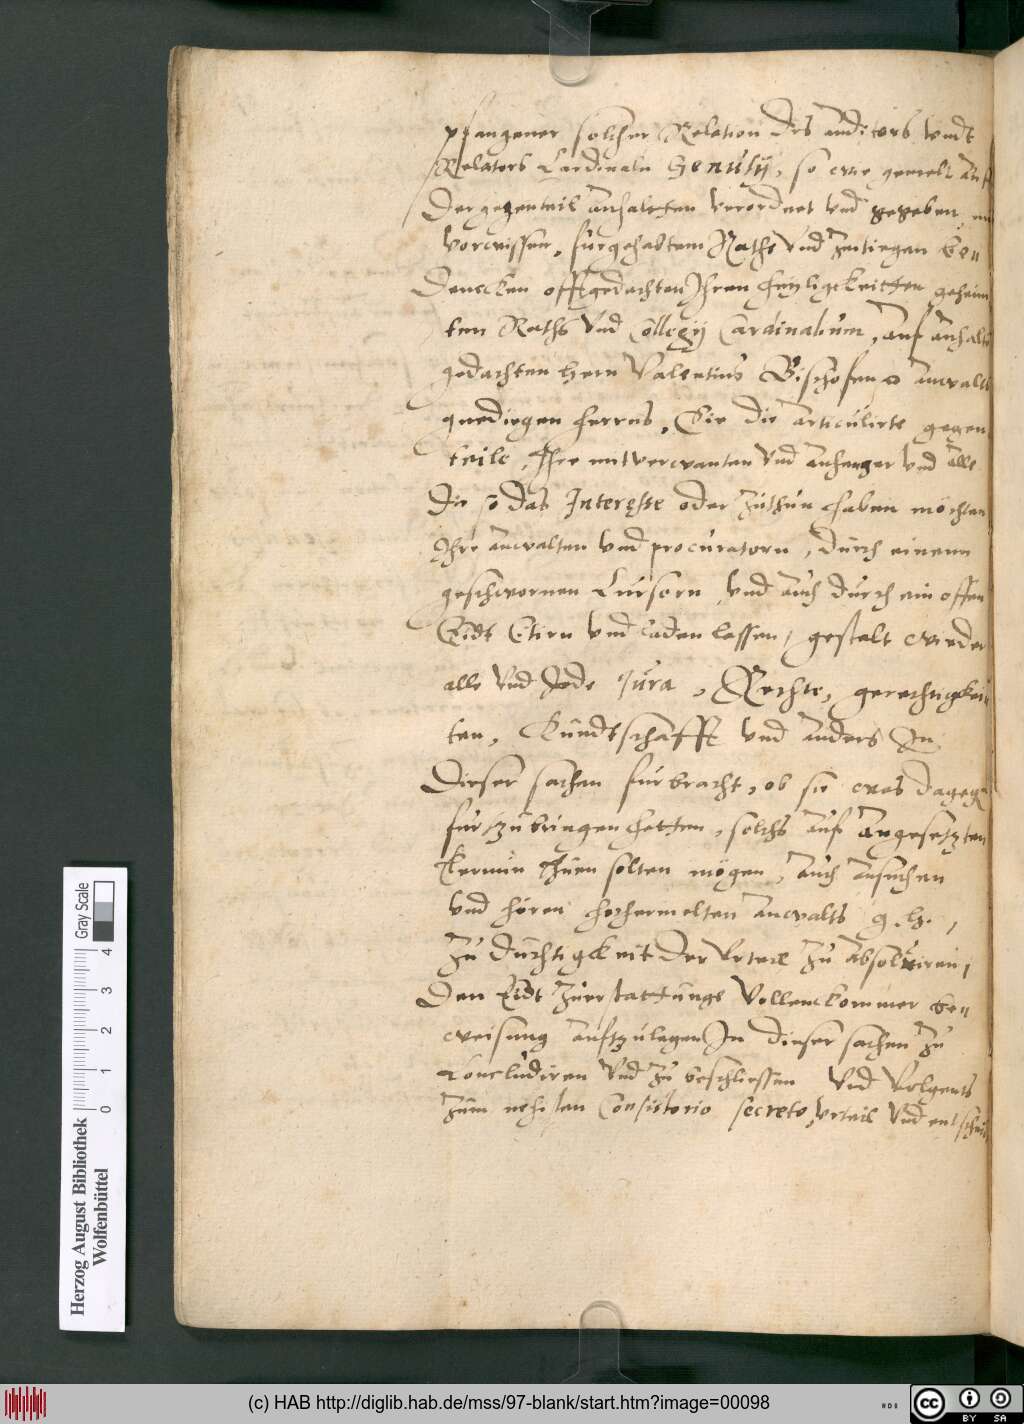 pfangener solcher Relation des auditors vndt
Relators Cardinaln Senusÿ, so wie gemelt auf
Der gegenteil anhaltten verordnet vnd gegeben
vorwissen, fürgehabtem Raths vnd zeitiegen be„
Dencken offtgedachten Ihren heyligkeitten geheim
ten Raths vnd Collegij Cardinalium, auf anhalten
gedachten hern Valentins Bischofen anwalts
gnediegen herrns, Die die articulirte gegen
teile, Ihre mitverwanten vnd anhenger vnd alle
Die so das Interesse oder zuthun haben möchten
Ihre anwalten vnd procuratorn, durch einenn
geschwornen Cursorn vnd auch durch ein offen
Eidt Citirn vnd laden lassen, gestalt wieder
alle vnd Jede Jura, Rechte, gerechtigkei„
ten, Kundtschafft vnd anders In
Dieser sachen fürbracht, ob sie was dagegen
fürzubringen hetten, solchs auf angesetzten
termin thuen solten mögen, auch ansuchen
vnd hören hochermelten anwalts g. h.,
zu düchtigkeit der Vrteil zu absoluiren,
Den Eidt zuerstattungs Vollenckommer be„
weisung auffzulagen In dieser sachen zu
Concludiren vnd zu beschliessen vnd Volgents
zum nehisten Consistorio secreto, vrteil vnd entscheit
Herzog August Bibliothek
Wolfenbüttel
0 1 2 3 4
Gray Scale
(c) HAB http://diglib.hab.de/mss/97-blank/start.htm?image=00098
cc BY SA